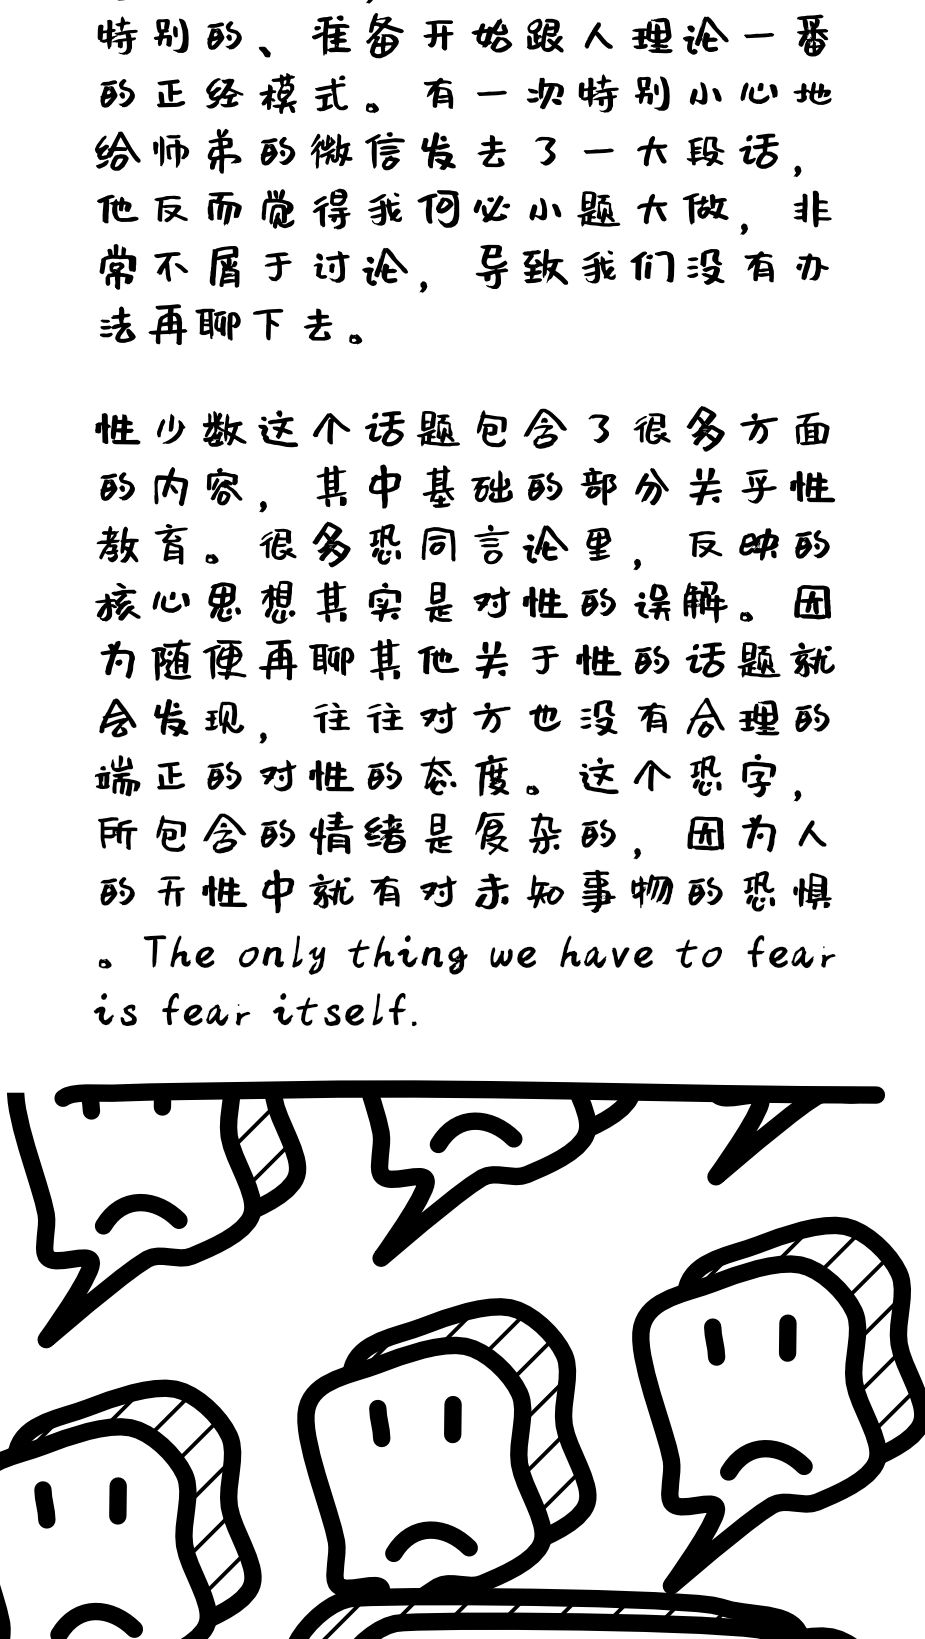 特别的、准备开始跟人理论一番
的正经模式。有一次特别小心地
给师弟的微信发去了一大段话，
他反而觉得我何必小题大做，非
常不屑于讨论，导致我们没有办
法再聊下去。
性少数这个话题包含了很多方面
的内容，其中基础的部分关乎性
教育。很多恐同言论里，反映的
核心思想其实是对性的误解。因
为随便再聊其他关于性的话题就
会发现，往往对方也没有合理的
端正的对性的态度。这个恐字，
所包含的情绪是复杂的，因为人
的天性中就有对未知事物的恐惧
。The only thing we have to fear
is fear itself.